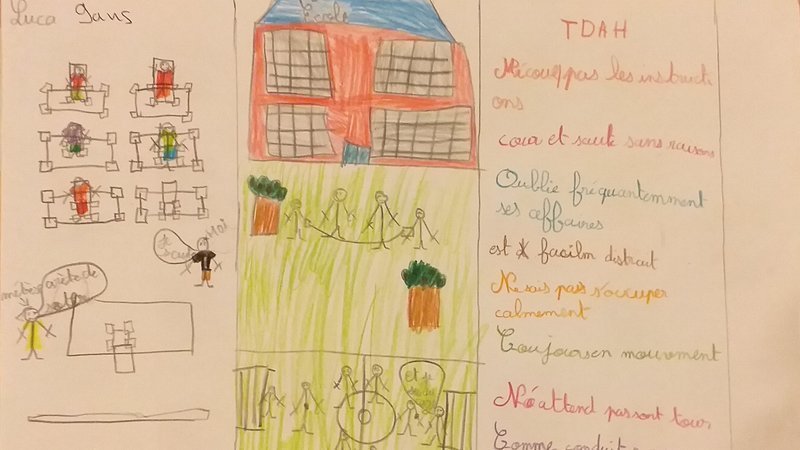 Luca 9ans
Moi
je
saute
arète de
École
et je
TDAH
N'écoute pas les instructi
ons
cour et saute sans raisons
Oublie fréquantemment
ses affaires
est facilm distrait
Ne sais pas s'occuper
calmement
Toujours en mouvement
N'attend pas sont tour
Comme conduit